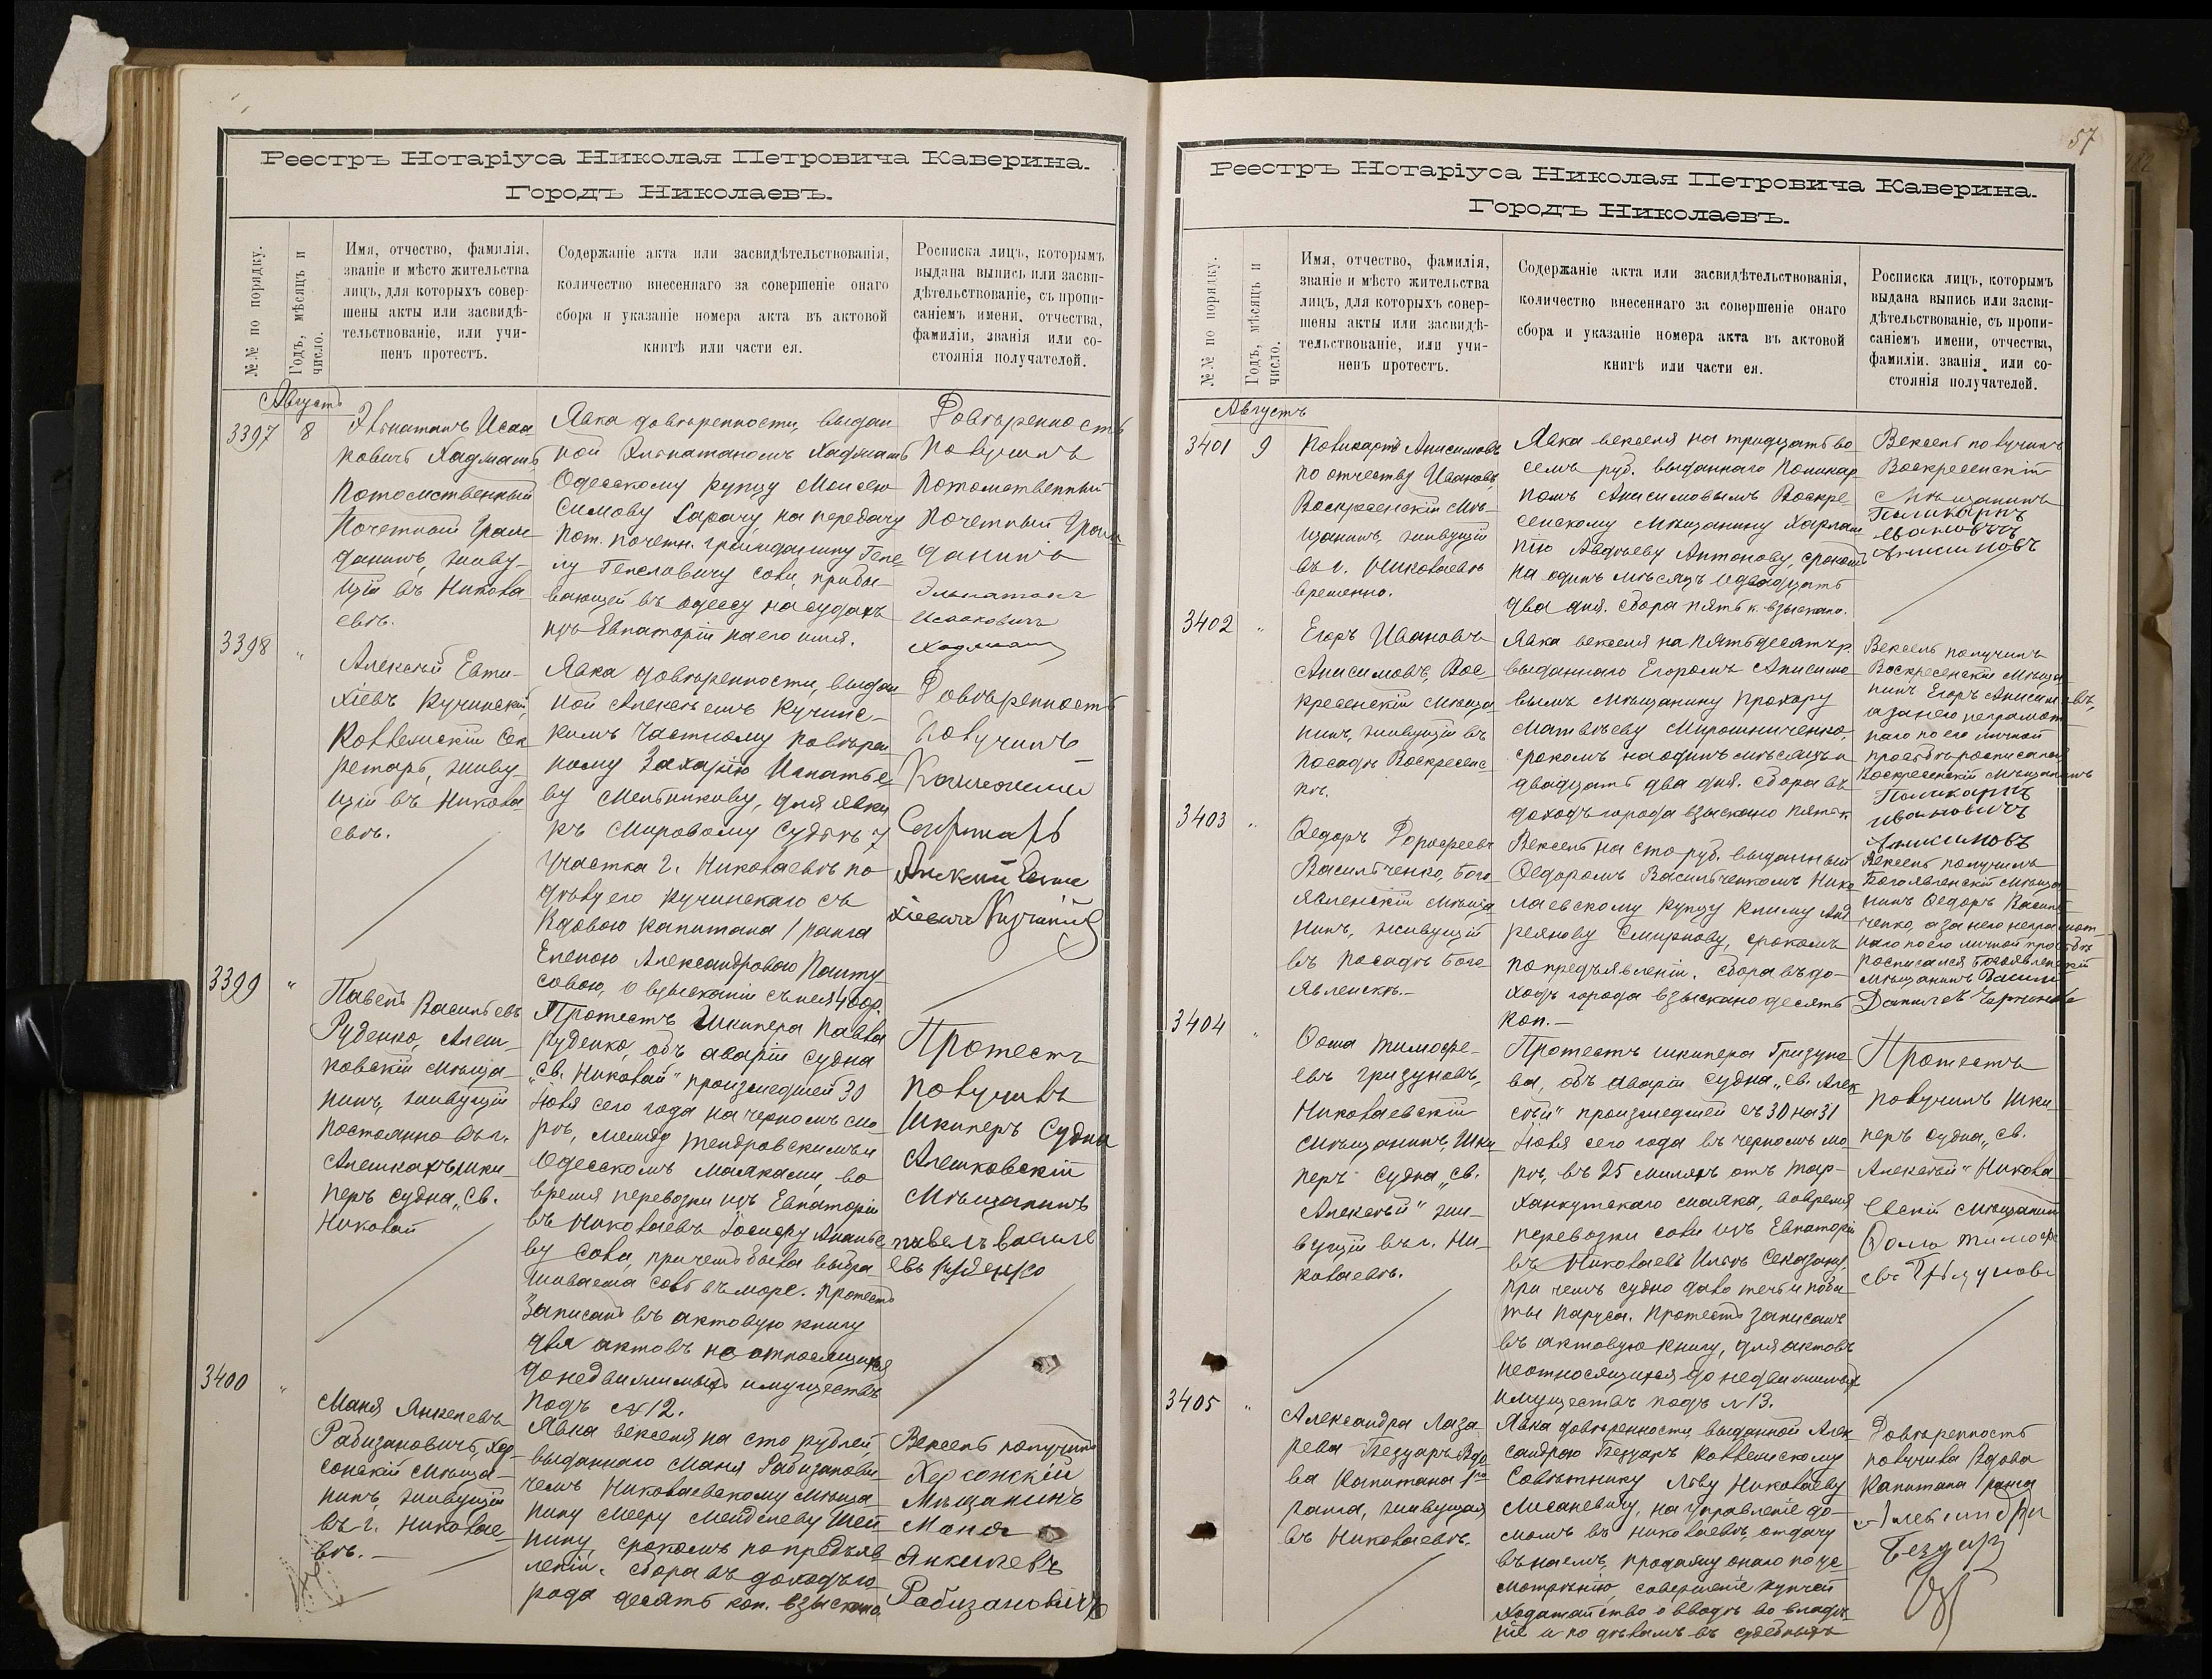 Реестръ Нотаріуса Николая Петровича Каверина.
Городъ Николаевъ.
№№ по порядку.
Годъ, мѣсяцъ и
число.
Имя, отчество, фамилія,
званіе и мѣсто жительства
лицъ, для которыхъ совер-
шены акты или засвидѣ-
тельствованіе, или учи-
ненъ протестъ.
Содержаніе акта или засвидѣтельствованія,
количество внесеннаго за совершеніе онаго
сбора и указаніе номера акта въ актовой
книгѣ или части ея.
Росписка лицъ, которымъ
выдана выпись или засви-
дѣтельствованіе, съ пропи-
саніемъ имени, отчества,
фамиліи, званія или со-
стоянія получателей.
Августъ
3397
8
Эльнатанъ Исаа
ковичъ Хаджашъ
потомственный
Почетный Граж
данинъ, живу-
щій въ Никола
евѣ.
Явка довѣренности, выдан
ной Эльнатаномъ Хаджашъ
Одесскому купцу Моисею
Симову Сарачу, на передачу
пот. почетн. гражданину Геле-
лу Гелеловичу соли, прибы-
вающей въ Одессу на судахъ
изъ Евпаторіи на его имя.
Довѣренность
получилъ
потомственный
почетный Граж
данинъ
Эльнатанъ
Исааковичъ
Хаджашъ
3398
"
Алексѣй Евти-
хіевъ Кучинскій,
Коллежскій Сек
ретарь, живу
щій въ Никола
евѣ.
Явка довѣренности, выдан
ной Алексѣемъ Кучинс-
кимъ Частному повѣрен
ному Захарію Игнатье-
ву Мельникову, для явки
къ Мировому Судьѣ 7
участка г. Николаевѣ по
дѣлу его Кучинскаго съ
Вдовою капитана 1 ранга
Еленою Александровою Пашту
совою, о взысканіи съ нея 400р.
Довѣренность
получилъ
Коллежскій
Секретарь
Алексѣй Евти
хіевичъ Кучинскій
3399
"
Павелъ Васильевъ
Руденко, Алеш-
ковскій мѣща-
нинъ, живущій
постоянно въ г.
Алешкахъ шки
перъ судна „Св.
Николай
Протестъ Шкипера Павла
Руденко, объ аваріи судна
„Св. Николай" произшедшей 30
Іюля сего года на черномъ мо
рѣ, между Тендровскимъ и
Одесскомъ маяками, во
время перевозки изъ Евпаторіи
въ Николаевъ Іосифу Ананье
ву соли, при чемъ была выбра
шиваема соль въ море. Протестъ
записанъ въ актовую книгу
для актовъ не относящихся
до недвижимыхъ имуществъ
подъ №12.
Протестъ
получилъ
Шкиперъ Судна
Алешковскій
Мѣщанинъ
павелъ василье
евъ руденко
3400
"
Маня Янкелевъ
Рабизановичъ, Хер
сонскій мѣща-
нинъ, живущій
въ г. Николае-
вѣ.
Явка векселя на сто рублей,
выданнаго Маня Рабизанови-
чемъ Николаевскому мѣща
нину Мееру Мейделеву Шей
нину, срокомъ по предъяв
ленію. Сбора въ доходъ го-
рода десять коп. взыскано.
Вексель получилъ
Херсонскій
Мѣщанинъ
Маня
Янкилевъ
Рабизановичъ
57
Реестръ Нотаріуса Николая Петровича Каверина.
Городъ Николаевъ.
№№ по порядку.
Годъ, мѣсяцъ и
число.
Имя, отчество, фамилія,
званіе и мѣсто жительства
лицъ, для которыхъ совер-
шены акты или засвидѣ-
тельствованіе, или учи-
ненъ протестъ.
Содержаніе акта или засвидѣтельствованія,
количество внесеннаго за совершеніе онаго
сбора и указаніе номера акта въ актовой
книгѣ или части ея.
Росписка лицъ, которымъ
выдана выпись или засви-
дѣтельствованіе, съ пропи-
саніемъ имени, отчества,
фамиліи. званія, или со-
стоянія получателей.
Августъ
3401
9
Поликарпъ Анисимовъ
по отчеству Ивановъ,
Воскресенскій Мѣ-
щанинъ, живущій
въ г. Николаевѣ
временно.
Явка векселя на тридцать во
семь руб. выданнаго Поликар
помъ Анисимовымъ Воскре-
сенскому мѣщанину Харлам
пію Авдѣеву Антонову, срокомъ
на одинъ мѣсяцъ и двадцать
два дня. Сбора пять к. взыскано.
Вексель получилъ
Воскресенскій
Мѣщанинъ
Поликарпъ
Ивановичъ
Анисимовъ
3402
"
Егоръ Ивановъ
Анисимовъ, Вос
кресенскій мѣща
нинъ, живущій въ
посадѣ Воскресенс-
кѣ.
Явка векселя на пятьдесятъ р.
выданнаго Егоромъ Анисимо
вымъ мѣщанину Прохору
Матвѣеву Мирошниченко,
срокомъ на одинъ мѣсяцъ и
двадцать два дня. Сбора въ
доходъ города взыскано пять к.
Вексель получилъ
Воскресенскій мѣща
нинъ Егоръ Анисимовъ,
а за него неграмот
наго по его личной
просьбѣ росписался
Воскресенскій мѣщанинъ
Поликарпъ
Ивановичъ
Анисимовъ
3403
"
Ѳедоръ Дорофеевъ
Васильченко, Бого
явленскій мѣща
нинъ, живущій
въ посадѣ Бого-
явленскѣ.-
Вексель на сто руб. выданный
Ѳедоромъ Васильченкомъ Нико
лаевскому купцу Климу Анд
реянову Смирнову, срокомъ
по предъявленіи. Сбора въ до-
ходъ города взыскано десять
коп.-
Вексель получилъ
Богоявленскій мѣща-
нинъ Ѳедоръ Василь
ченко, а за него неграмот-
наго по его личной просьбѣ
росписался Богоявленскій
мѣщанинъ Василій
3404
"
Ѳома Тимофе-
евъ Гризуновъ,
Николаевскій
мѣщанинъ, Шки
перъ судна „Св.
Алексѣй" жи-
вущій въ г. Ни-
колаевѣ.
Протестъ шкипера Гризуно-
ва, объ аваріи судна „Св. Алек
сѣй" произшедшей съ 30 на 31
Іюля сего года въ черномъ мо
рѣ, въ 25 миляхъ отъ Тар-
ханкутскаго маяка, вовремя
перевозки соли изъ Евпаторіи
въ Николаевъ Ильѣ Секизону,
при чемъ судно дало течь и поби
ты паруса. Протестъ записанъ
въ актовую книгу, для актовъ
неотносящихся до недвижимыхъ
имуществъ подъ №13.
Протестъ
получилъ Шки-
перъ судна „Св.
Алексѣй" Никола
евскій мѣщанинъ
Ѳома Тимофе
евъ Гризуновъ
3405
"
Александра Лаза-
рева Бездаръ, Вдо
ва Капитана 1го
ранга, живущая
въ Николаевѣ.
Явка довѣренности, выданной Алек
сандрою Бездаръ Коллежскому
Совѣтнику Льву Николаеву
Лисаневичу, на управленіе до-
момъ въ Николаевѣ, отдачу
въ наемъ, продажу онаго по ус-
мотрѣнію, совершеніе купчей
ходатайство о вводѣ во владѣ
ніе и по дѣламъ въ судебныхъ
Довѣренность
получила Вдова
Капитана 1 ранга
Александра
Бездаръ